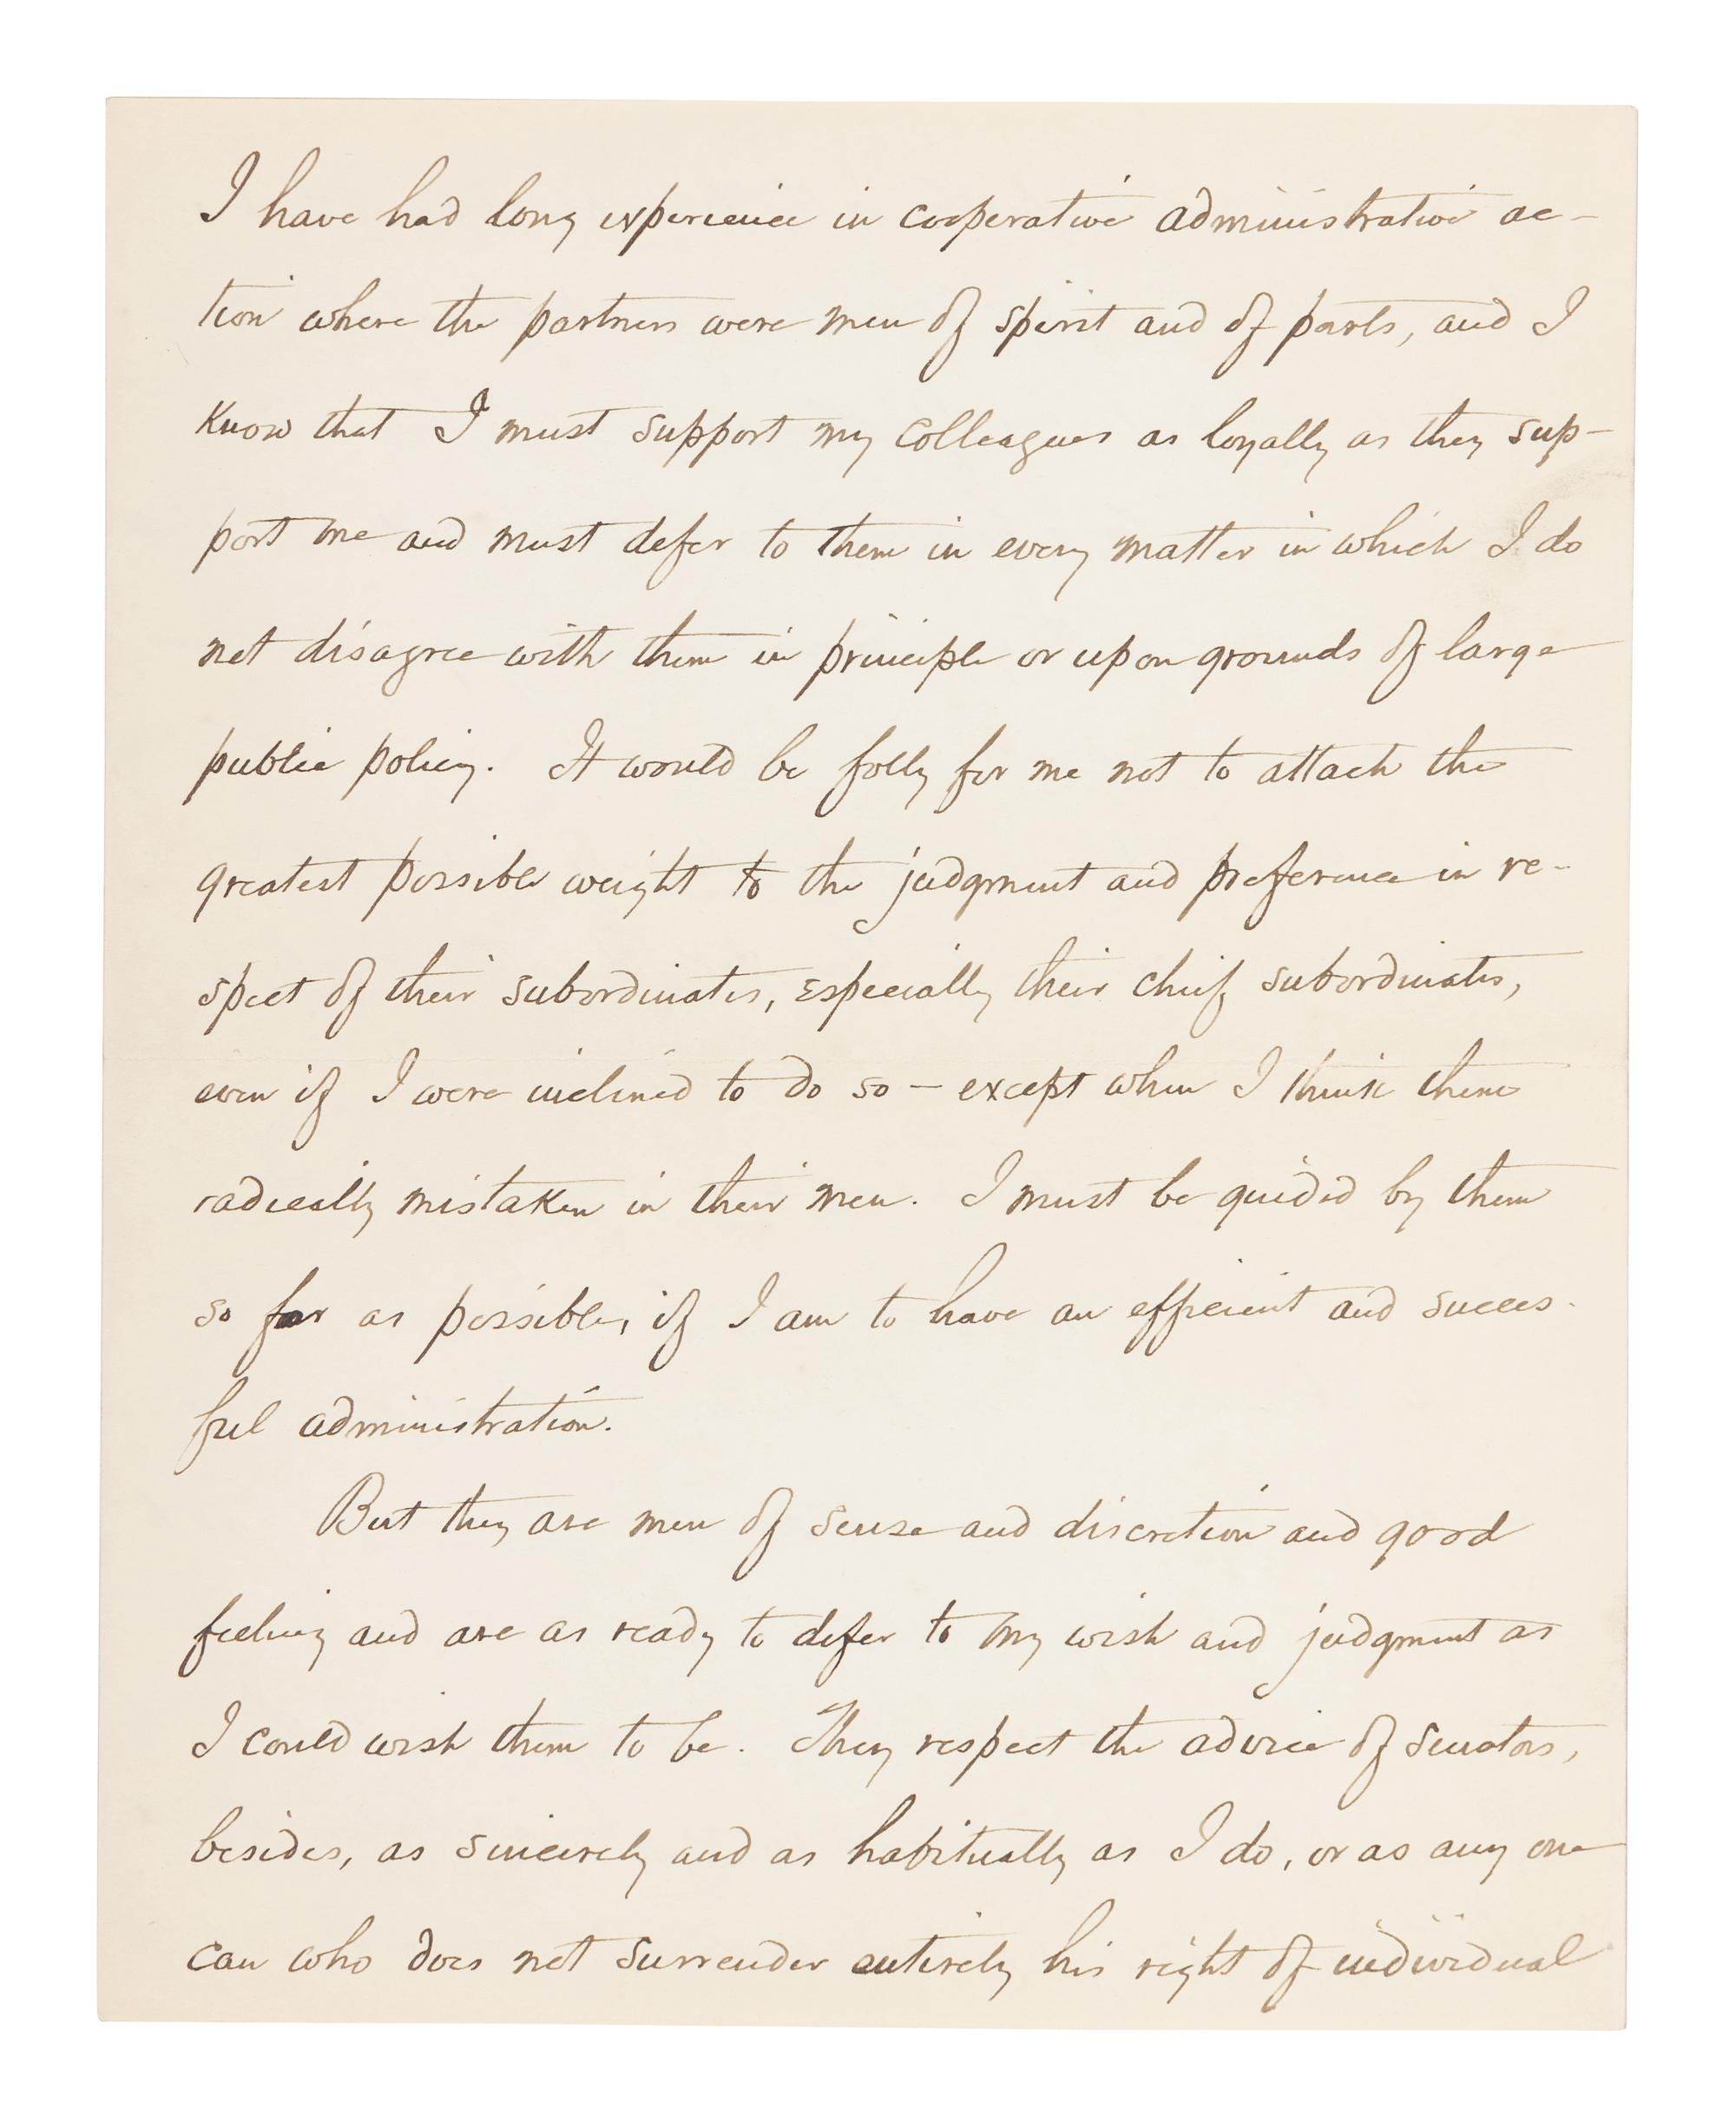 I have had long experience in coöperative administrative ac-
tion where the partners were men of spirit and of parts, and I
know that I must support my colleagues as loyally as they sup-
port me and must defer to them in every matter in which I do
not disagree with them in principle or upon grounds of large
public policy. It would be folly for me not to attach the
greatest possible weight to the judgment and preference in re-
spect of their subordinates, especially their chief subordinates,
even if I were inclined to do so – except when I think them
radically mistaken in their men. I must be guided by them
so far as possible, if I am to have an efficient and success-
ful administration.
But they are men of sense and discretion and good
feeling and are as ready to defer to my wish and judgment as
I could wish them to be. They respect the advice of senators,
besides, as sincerely and as habitually as I do, or as any one
can who does not surrender entirely his right of individual